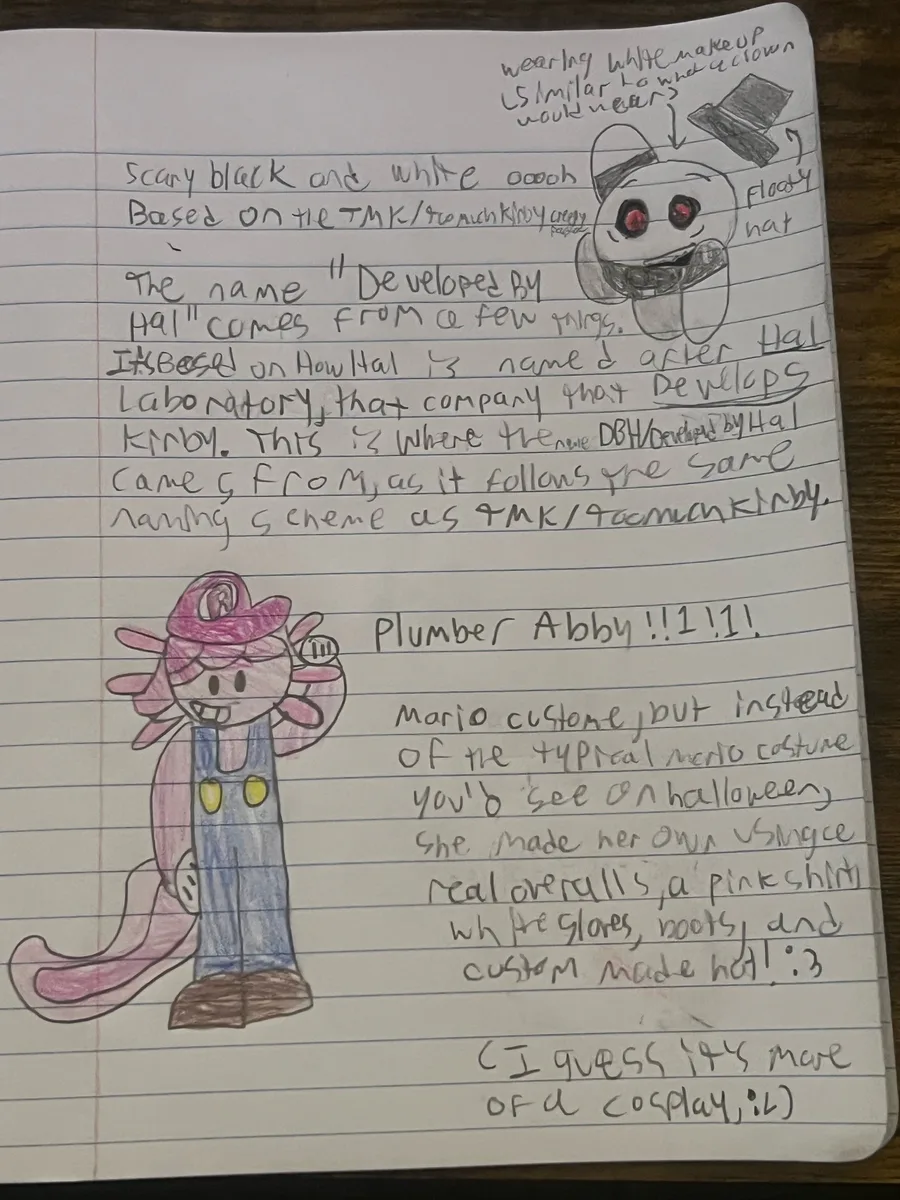 wearing white makeup
(similar to what a clown
would wear)
floaty
hat
Scary black and white ooooh
Based on the TMK/toomuchkirby creepy
pasta
The name "Developed By
Hal" comes from a few things.
It's Based on How Hal is named after Hal
Laboratory, that company that Develops
Kirby. This is where the name DBH/Developed by Hal
comes from, as it follows the same
naming scheme as TMK/toomuchkirby.
R
Plumber Abby!!1!1!
Mario custome, but instead
of the typical mario costume
you'd see on halloween,
she made her own using
real overalls, a pink shirt,
white gloves, boots, and
custom made hat! :3
(I guess it's more
of a cosplay, :L)